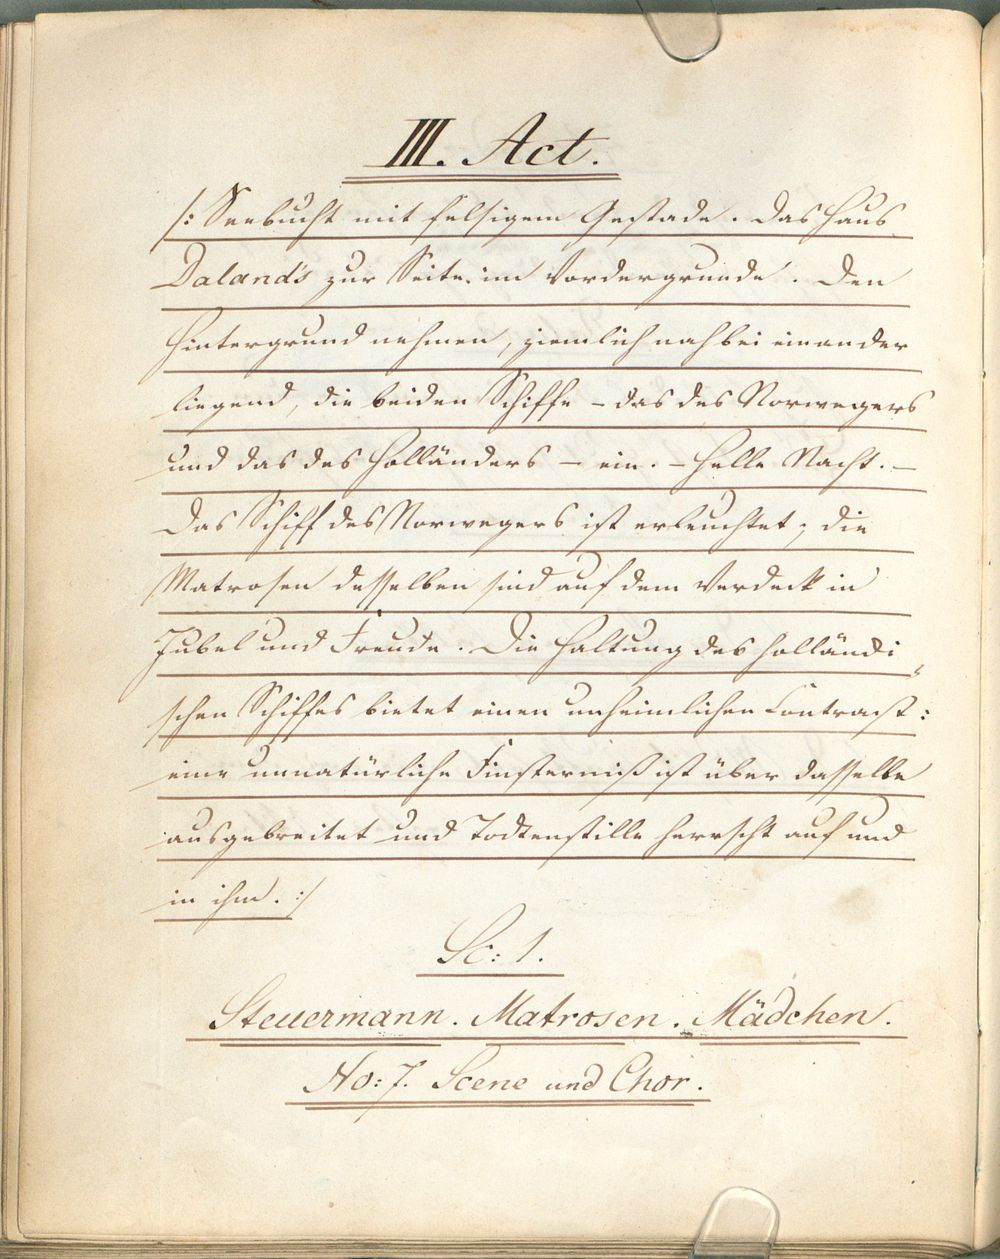 III. Act.
/: Seebucht mit felsigem Gestade. Das Haus
Daland's zur Seite im Vordergrunde. Den
Hintergrund nehmen, ziemlich nah bei einander
liegend, die beiden Schiffe – das des Norwegers
und das des Holländers – ein. – Helle Nacht. –
Das Schiff des Norwegers ist erleuchtet; die
Matrosen desselben sind auf dem Verdeck in
Jubel und Freude. Die Haltung des holländi-
schen Schiffes bietet einen unheimlichen Contrast:
eine unnatürliche Finsterniß ist über dasselbe
ausgebreitet und Todtenstille herrscht auf und
in ihm. :/
Sc: 1.
Steuermann. Matrosen. Mädchen.
No: 7. Scene und Chor.